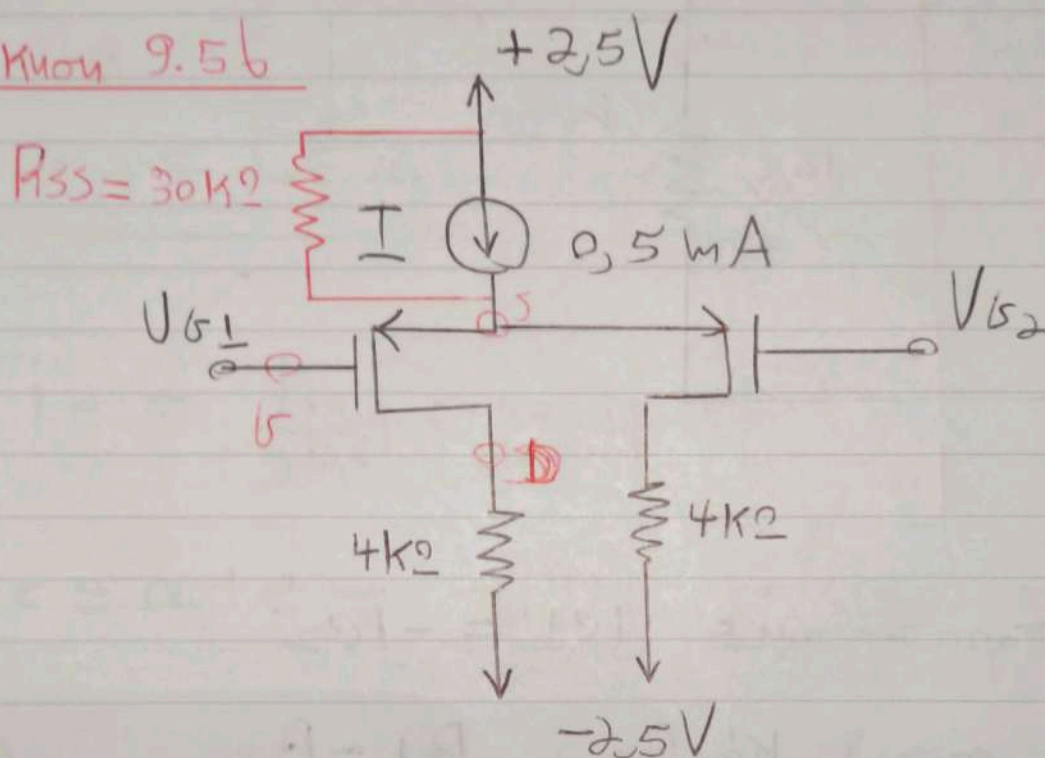 κηση 9.5b
+2,5V
RSS = 30KΩ
I
0,5 mA
S
VG1
VG2
G
D
4KΩ
4KΩ
-2,5V